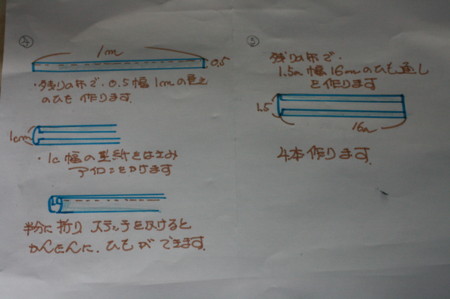 ④
1m
0.5
・残りの布で、0.5幅 1mの長さ
のひも作ります。
1cm
・1c幅の型紙をはさみ
アイロンをかけます
半分に折り ステッチをかけると
かんたんに、ひもができます。
⑤
残りの布で
1.5c幅16cmのひも通し
を作ります
1.5
16c
4本作ります。